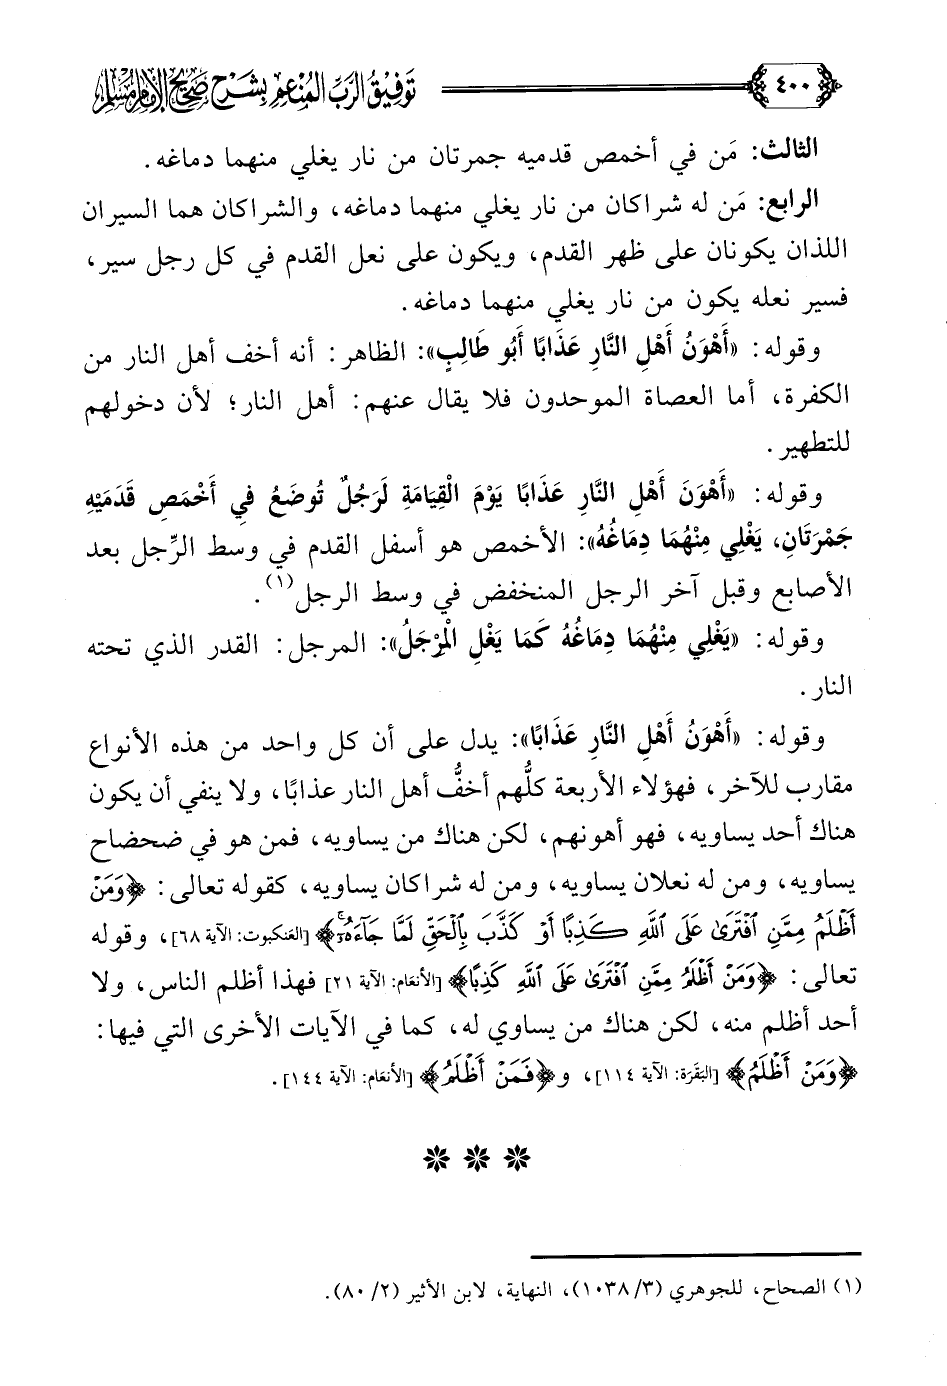 توفيق الرب المنعم بشرح صحيح الإمام مسلم
٤٠٠
الثالث: مَن في أخمص قدميه جمرتان من نار يغلي منهما دماغه.
الرابع: مَن له شراكان من نار يغلي منهما دماغه، والشراكان هما السيران
اللذان يكونان على ظهر القدم، ويكون على نعل القدم في كل رجل سير،
فسير نعله يكون من نار يغلي منهما دماغه.
وقوله: «أَهْوَنُ أَهْلِ النَّارِ عَذَابًا أَبُو طَالِبٍ»: الظاهر: أنه أخف أهل النار من
الكفرة، أما العصاة الموحدون فلا يقال عنهم: أهل النار؛ لأن دخولهم
للتطهير.
وقوله: «أَهْوَنَ أَهْلِ النَّارِ عَذَابًا يَوْمَ الْقِيَامَةِ لَرَجُلٌ تُوضَعُ فِي أَخْمَصِ قَدَمَيْهِ
جَمْرَتَانِ، يَغْلِي مِنْهُمَا دِمَاغُهُ»: الأخمص هو أسفل القدم في وسط الرِّجل بعد
الأصابع وقبل آخر الرجل المنخفض في وسط الرجل(١).
وقوله: «يَغْلِي مِنْهُمَا دِمَاغُهُ كَمَا يَغْلِ الْمِرْجَلُ»: المرجل: القدر الذي تحته
النار.
وقوله: «أَهْوَنُ أَهْلِ النَّارِ عَذَابًا»: يدل على أن كل واحد من هذه الأنواع
مقارب للآخر، فهؤلاء الأربعة كلُّهم أخفُّ أهل النار عذابًا، ولا ينفي أن يكون
هناك أحد يساويه، فهو أهونهم، لكن هناك من يساويه، فمن هو في ضحضاح
يساويه، ومن له نعلان يساويه، ومن له شراكان يساويه، كقوله تعالى: ﴿وَمَنْ
أَظْلَمُ مِمَّنِ ٱفْتَرَىٰ عَلَى ٱللَّهِ كَذِبًا أَوْ كَذَّبَ بِٱلْحَقِّ لَمَّا جَآءَهُۥٓ﴾ [العنكبوت: الآية ٦٨]، وقوله
تعالى: ﴿وَمَنْ أَظْلَمُ مِمَّنِ ٱفْتَرَىٰ عَلَى ٱللَّهِ كَذِبًا﴾ [الأنعَام: الآية ٢١] فهذا أظلم الناس، ولا
أحد أظلم منه، لكن هناك من يساوي له، كما في الآيات الأخرى التي فيها:
﴿وَمَنْ أَظْلَمُ﴾ [البَقَرَة: الآية ١١٤]، و﴿فَمَنْ أَظْلَمُ﴾ [الأنعَام: الآية ١٤٤].
(١) الصحاح، للجوهري (١٠٣٨/٣)، النهاية، لابن الأثير (٨٠/٢).